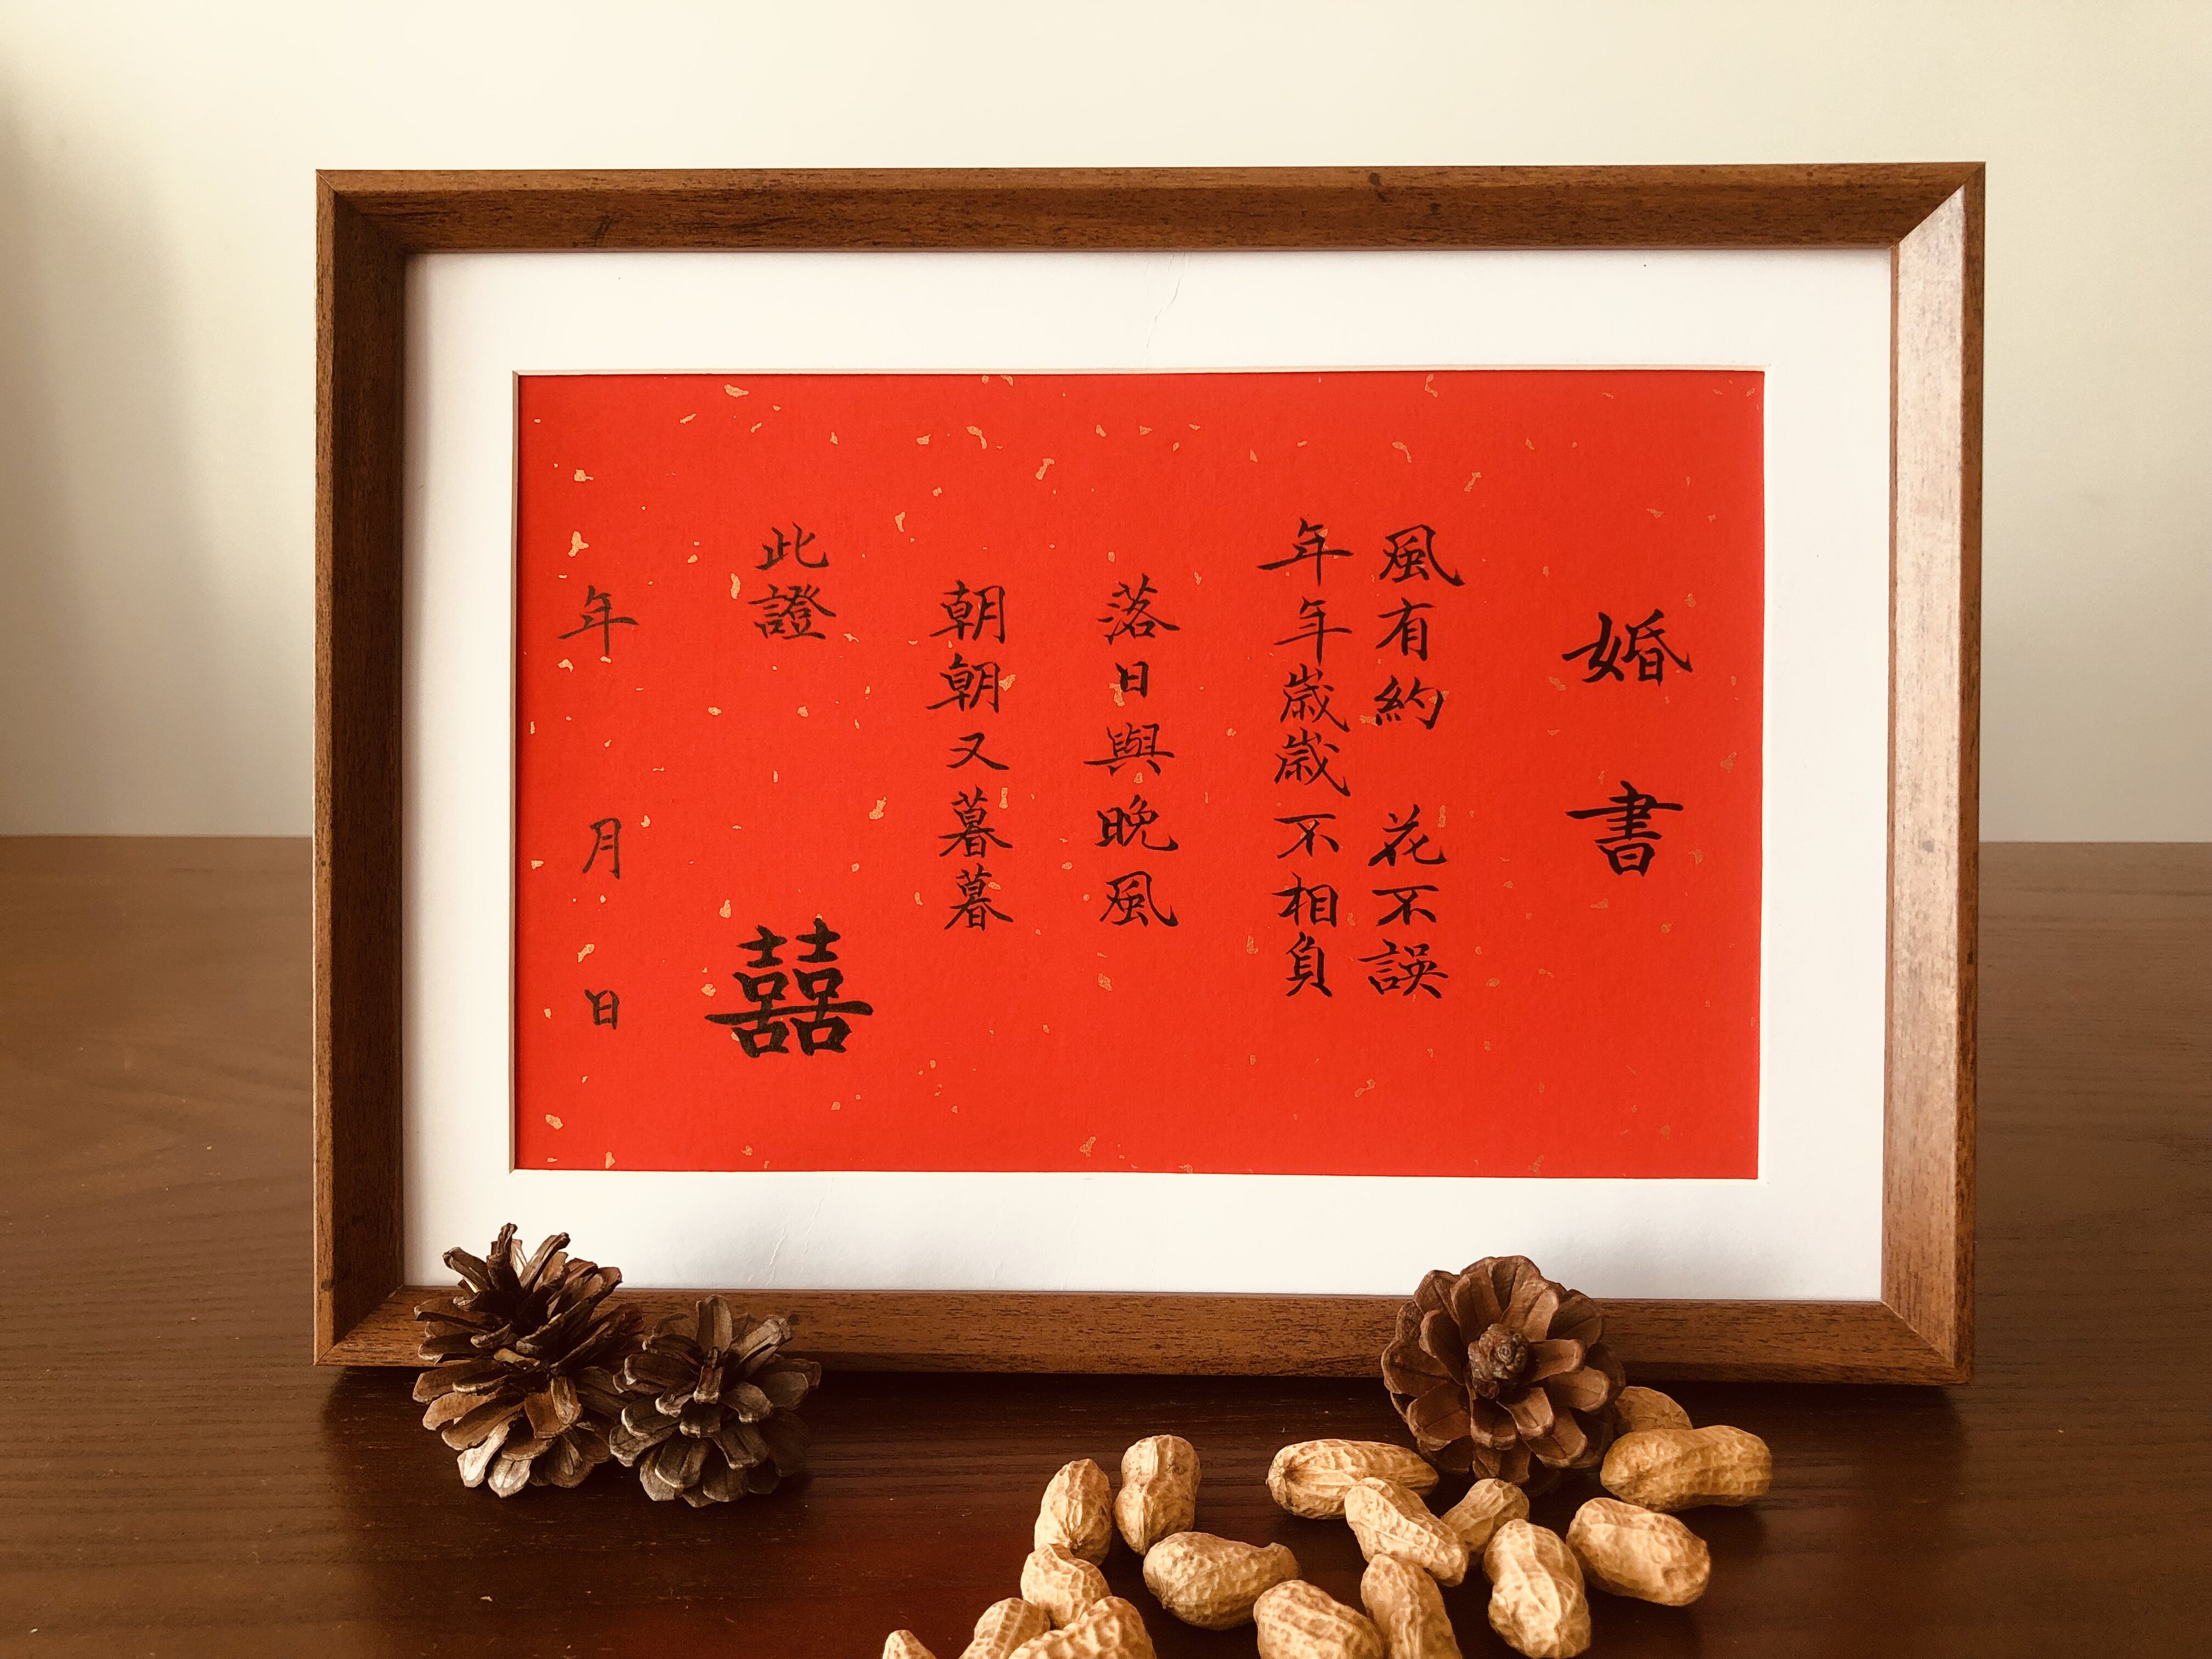 婚書
風有約 花不誤
年年歲歲不相負
落日與晚風
朝朝又暮暮
此證
囍
年 月 日